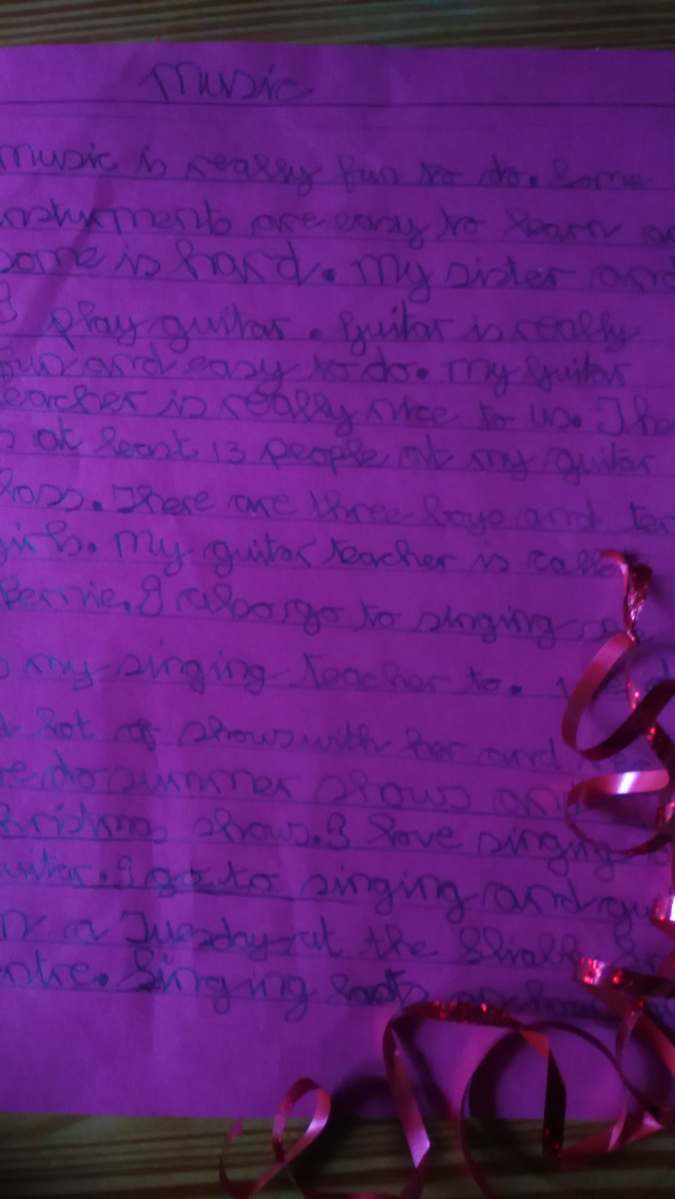 Music
music is really fun to do. Some
insturments are easy to learn an
some is hard. My sister and
I play guitar. Guitar is really
fun and easy to do. My guitar
teacher is really nice to us. The
s at least 13 people at my guitar
class. There are three boys and ten
girls. My guitar teacher is call
I also go to singing
my singing teacher to.
lot of shows with her and
we do summer shows an
shows. I love singing
I go to singing and gu
on a Tuesday at the
Singing